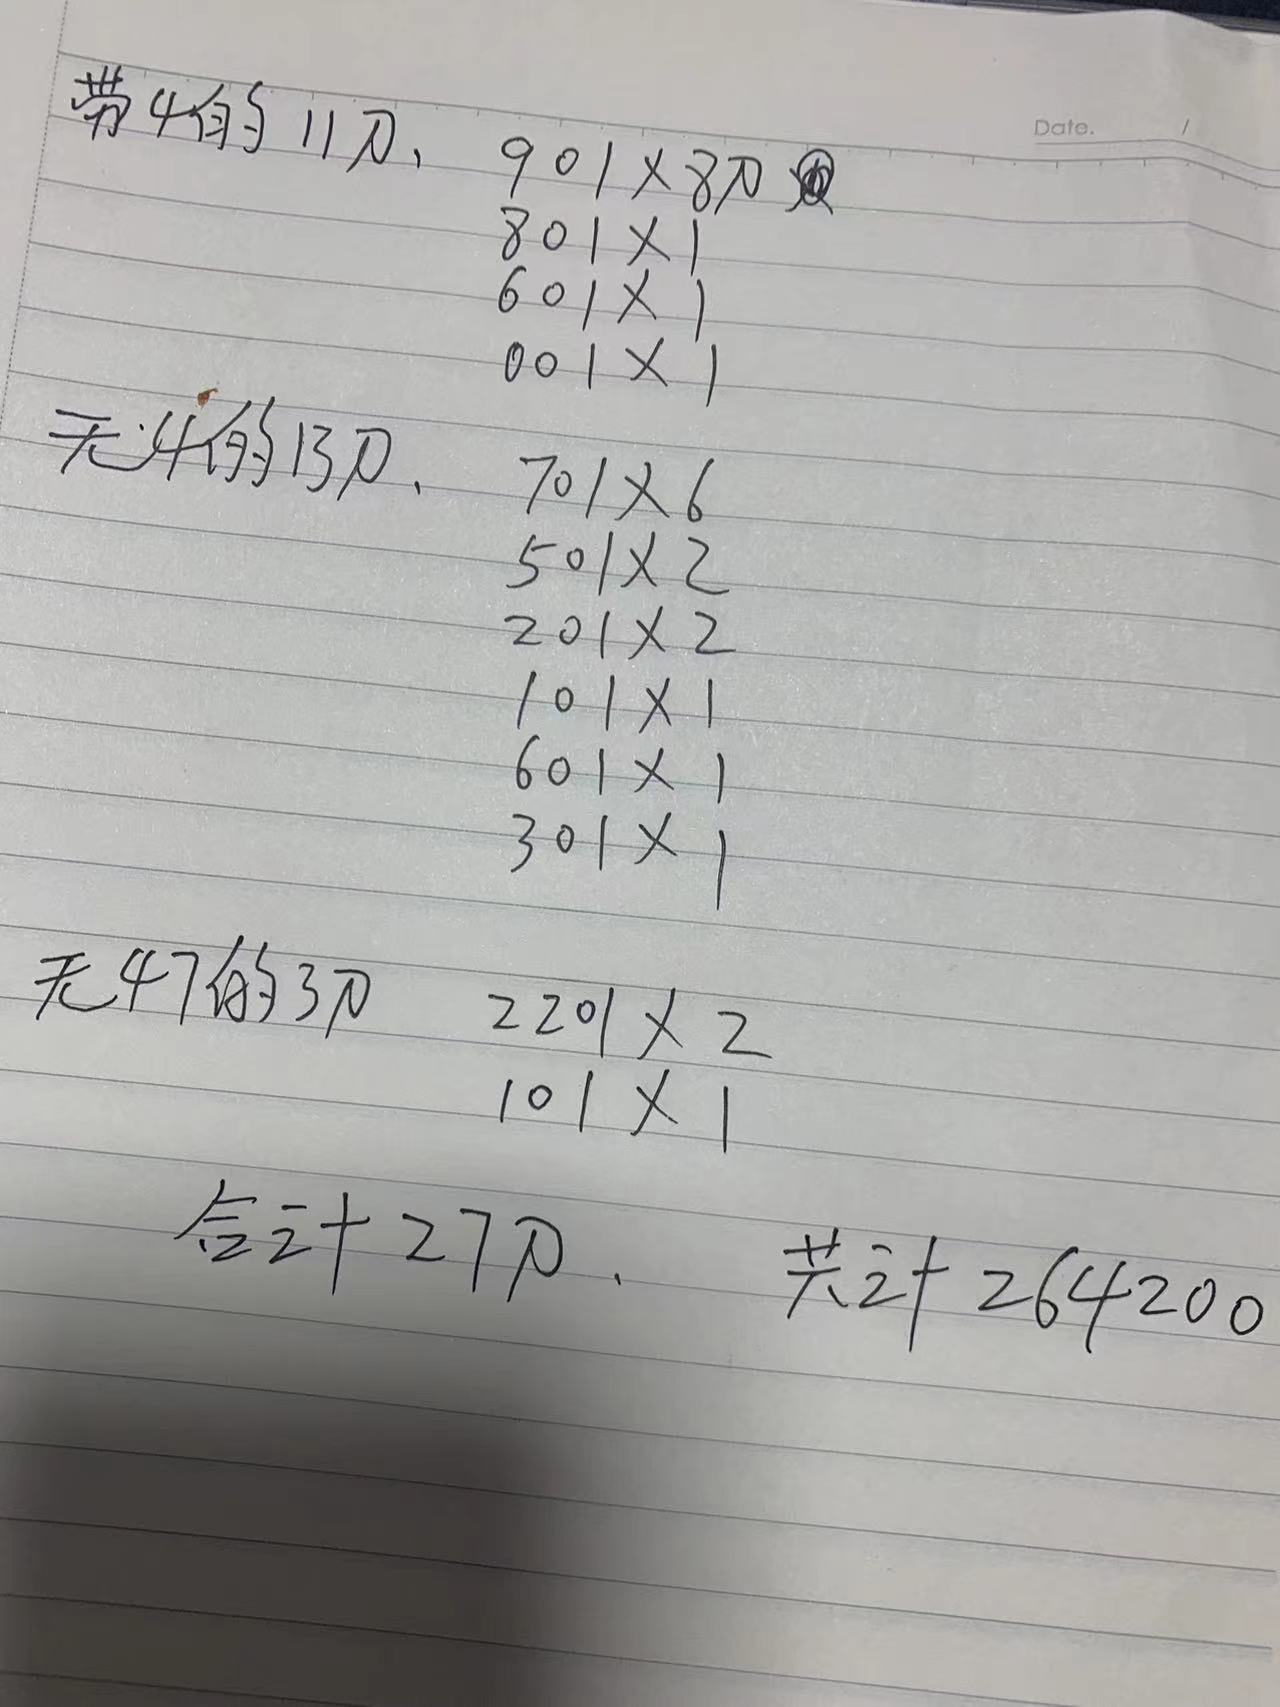 Date. /
带4的11刀、 901×8刀
801×1
601×1
001×1
无4的13刀、 701×6
501×2
201×2
101×1
601×1
301×1
无47的3刀 2201×2
101×1
合计27刀、 共计264200